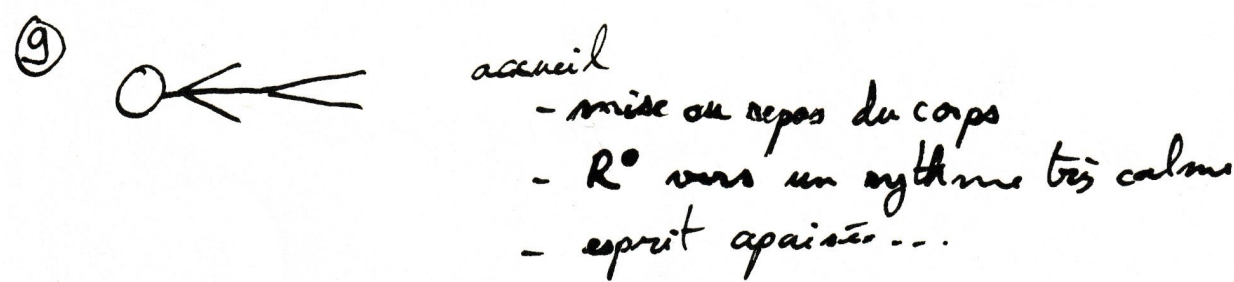 ⑨
accueil
- mise au repos du corps
- R° vers un rythme très calme
- esprit apaisé...